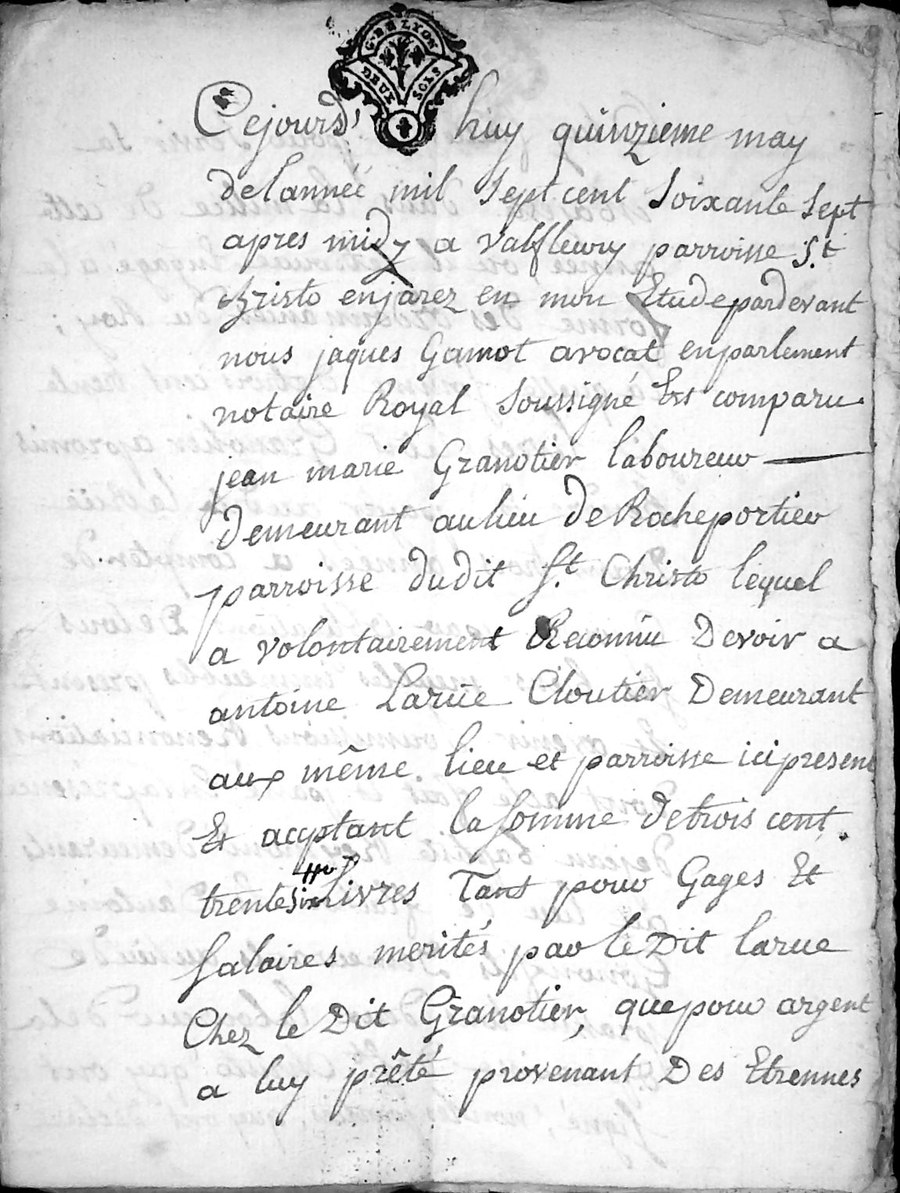 G. DE LYON
DEUX SOLS
Cejourd'huy quinzieme may
de lanneé mil sept cent soixante sept
apres midy a valfleury parroisse St
Christo enjarez en mon Etude pardevant
nous jaques Gamot avocat enparlement
notaire Royal soussigné Est comparu
jean marie Granotier laboureur
demeurant aulieu de Rocheportier
parroisse dudit St. Christo lequel
a volontairement Reconnu Devoir a
antoine Larüe Cloutier Demeurant
aux même lieu et parroisse ici present
Et acceptant la somme de trois cent
trente six livres Tant pour Gages Et
salaires merités par le Dit larue
Chez le Dit Granotier, que pour argent
a luy prêté provenant Des Etrennes